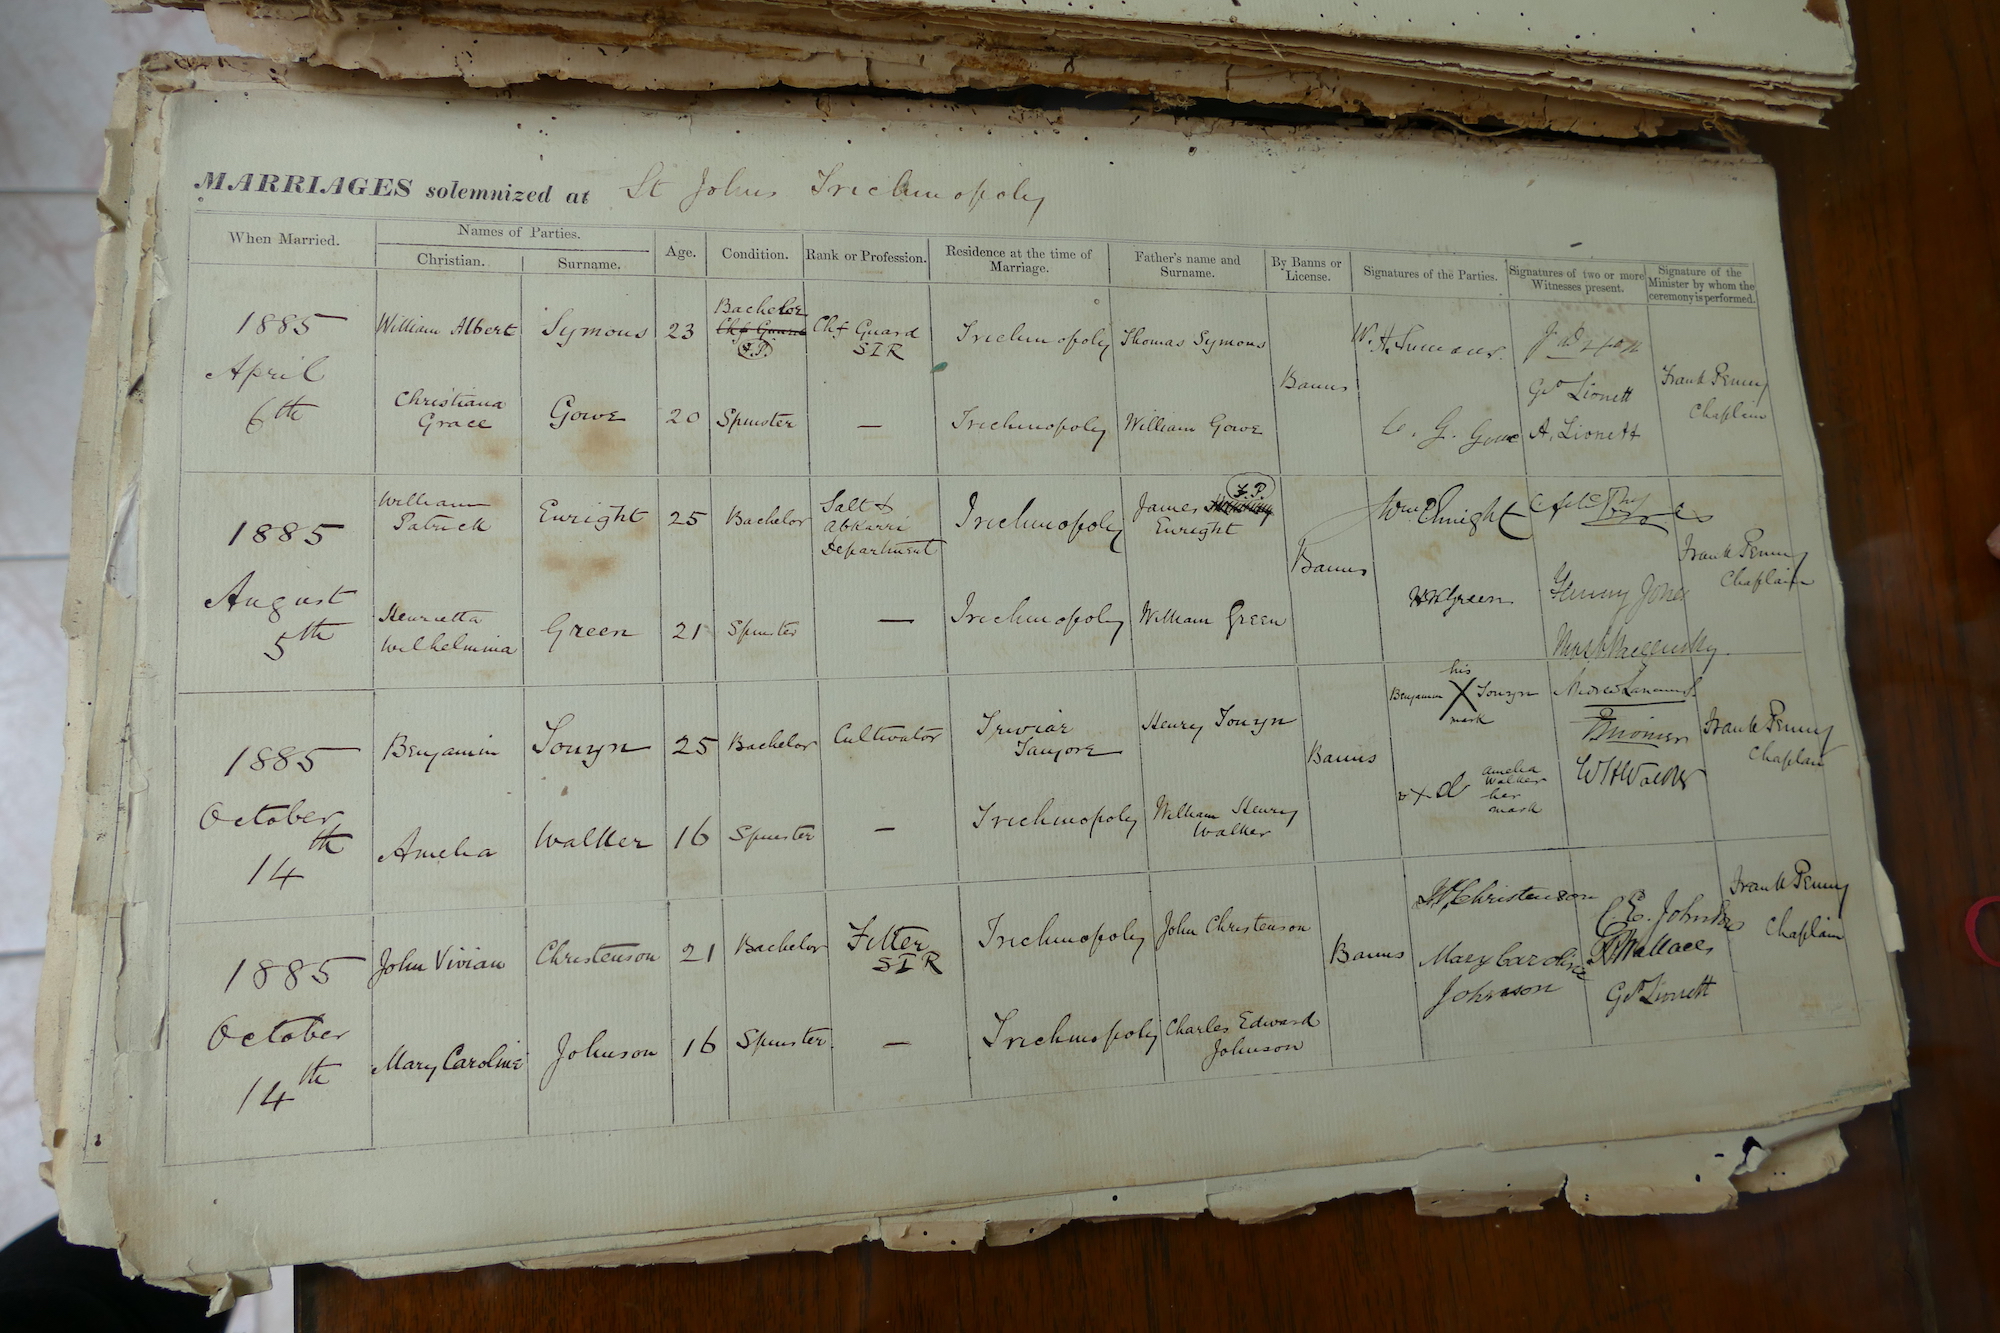 MARRIAGES solemnized at St Johns Trichinopoly
When Married.
Names of Parties.
Christian.
Surname.
Age.
Condition.
Rank or Profession.
Residence at the time of
Marriage.
Father's name and
Surname.
By Banns or
License.
Signatures of the Parties.
Signatures of two or more
Witnesses present.
Signature of the
Minister by whom the
ceremony is performed.
1885
April
6th
William Albert
Symons
23
Bachelor
Chf Guard
F.P.
Chf Guard
SIR
Trichinopoly
Thomas Symons
Banns
Christiana
Grace
Gowe
20
Spinster
—
Trichinopoly
William Gowe
C. G. Gowe
Geo Lionett
A. Lionett
Frank Penny
Chaplain
1885
August
5th
William
Patrick
Enright
25
Bachelor
Salt &
Abkarri
Department
Trichinopoly
F.P.
James
Enright
Banns
Wm P Enright
Henrietta
Wilhelmina
Green
21
Spinster
—
Trichinopoly
William Green
HWGreen
Henry Jones
Frank Penny
Chaplain
1885
October
14th
Benjamin
Touyn
25
Bachelor
Cultivator
Triviar
Tanjore
Henry Touyn
Banns
his
Benjamin X Touyn
mark
Amelia
Walker
16
Spinster
—
Trichinopoly
William Henry
Walker
Amelia
Walker
her
mark
WHWalker
Frank Penny
Chaplain
1885
October
14th
John Vivian
Christenson
21
Bachelor
Fitter
SIR
Trichinopoly
John Christenson
Banns
JVChristenson
Mary Caroline
Johnson
16
Spinster
—
Trichinopoly
Charles Edward
Johnson
Mary Caroline
Johnson
C. E. Johnson
Wallace
Geo Lionett
Frank Penny
Chaplain